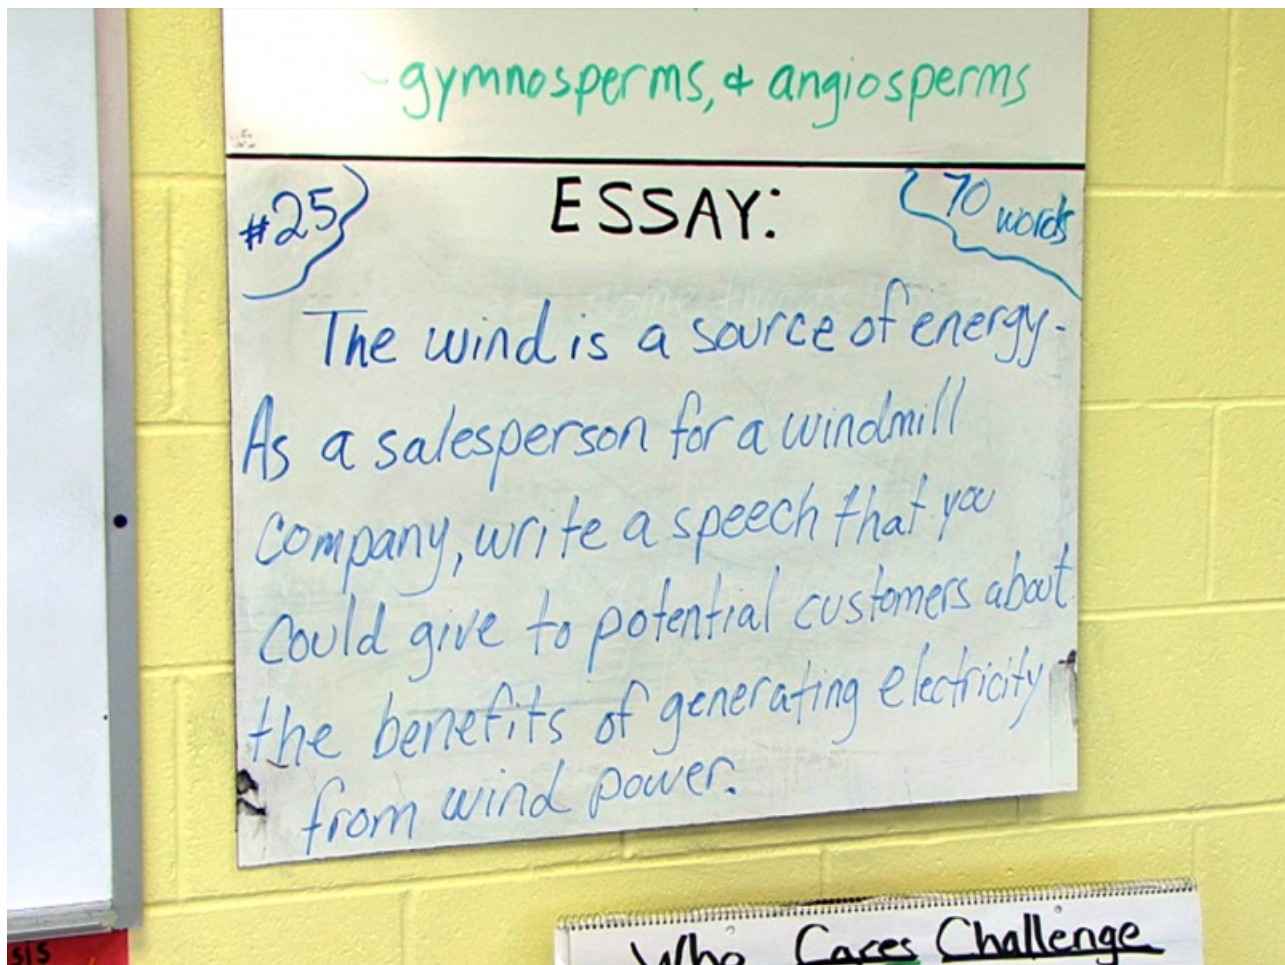 gymnosperms, & angiosperms
#25
ESSAY:
70 words
The wind is a source of energy.
As a salesperson for a windmill
company, write a speech that you
could give to potential customers about
the benefits of generating electricity
from wind power.
sis
Who Cares Challenge